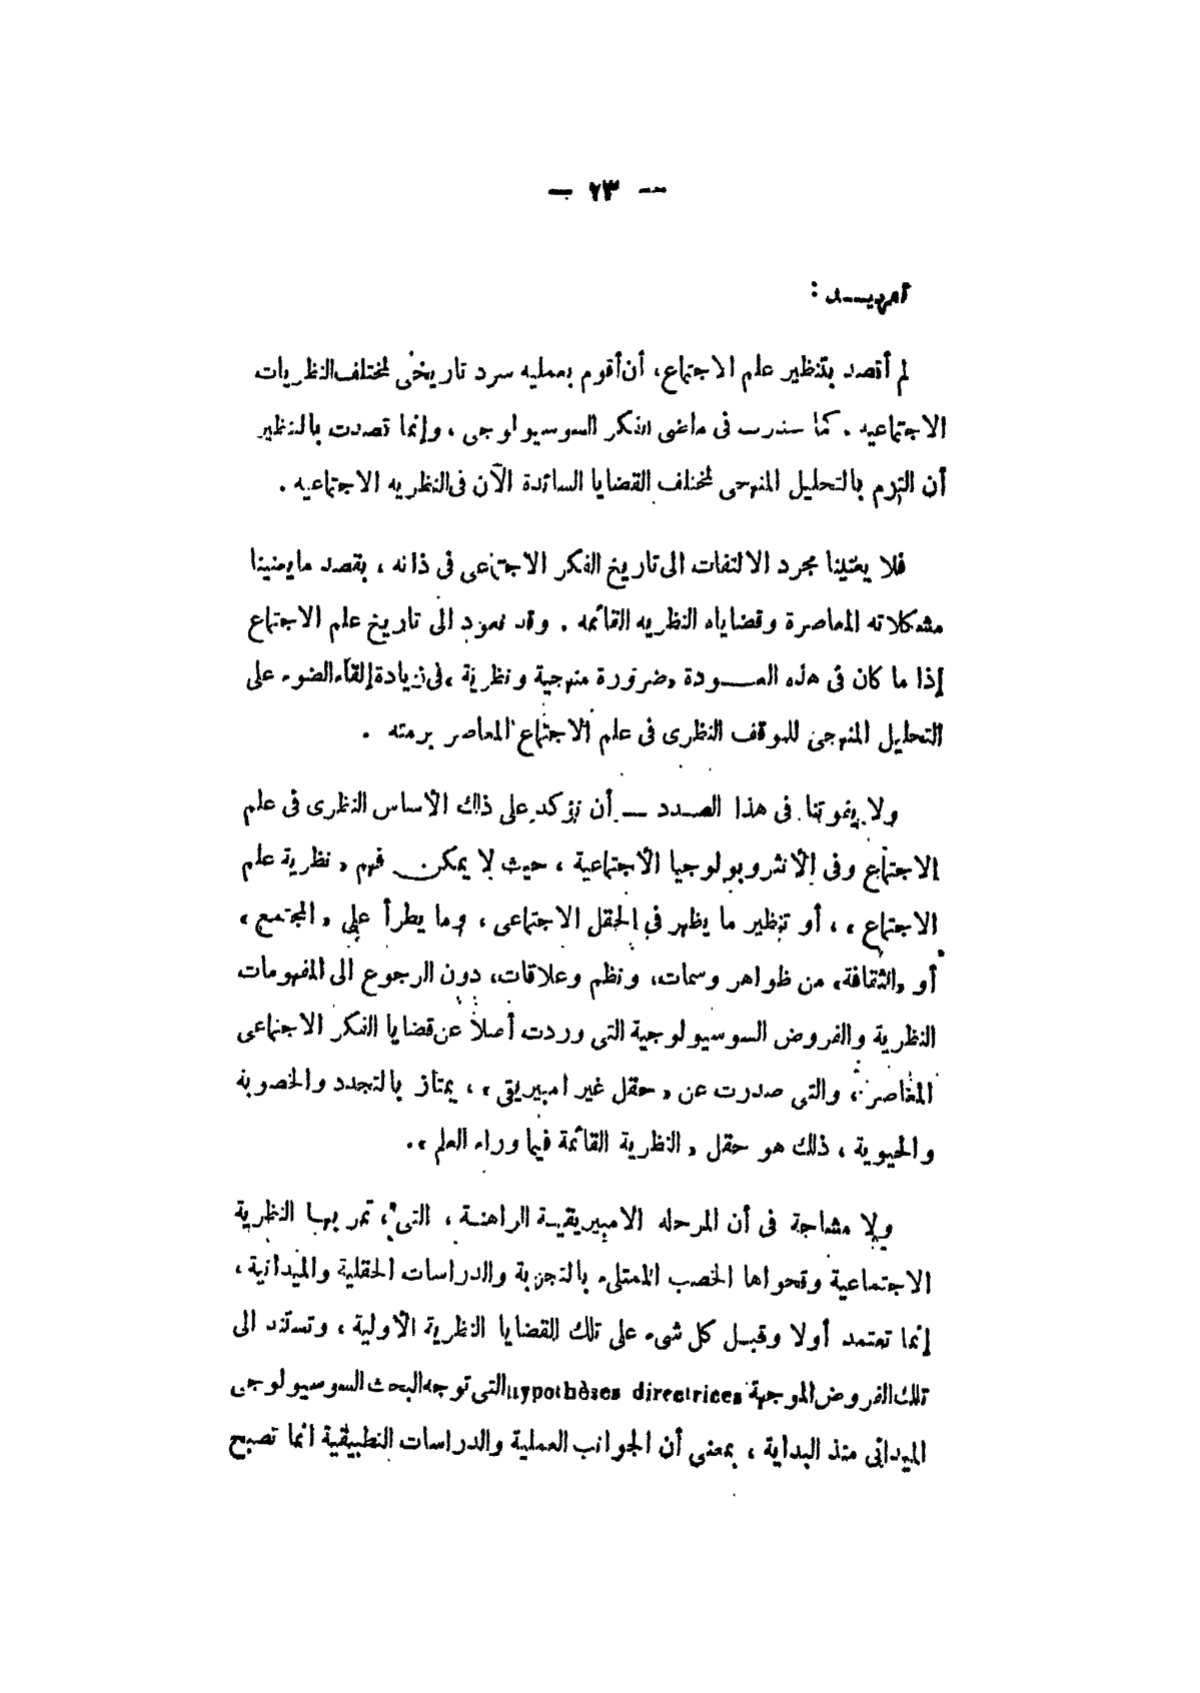 — ٢٣ —
تمهيـــد :
لم أقصد بتنظير علم الاجتماع، أن أقوم بعملية سرد تاريخى لمختلف النظريات
الاجتماعية . كما سندرت فى ماضى الفكر السوسيولوجى ، وإنما قصدت بالتنظير
أن التزم بالتحليل المنهجى لمختلف القضايا السائدة الآن فى النظرية الاجتماعية .
فلا يعنينا مجرد الالتفات الى تاريخ الفكر الاجتماعى فى ذاته ، بقصد ما يعنينا
مشكلاته المعاصرة وقضاياه النظرية القائمة . وقد نعود الى تاريخ علم الاجتماع
إذا ما كان فى هذه العـــودة «ضرورة منهجية ونظرية» فى زيادة إلقاء الضوء على
التحليل المنهجى للموقف النظرى فى علم الاجتماع المعاصر برمته .
ولا يفوتنا فى هذا الصدد — أن نؤكد على ذلك الأساس النظرى فى علم
الاجتماع وفى الأنثروبولوجيا الاجتماعية ، حيث لا يمكن فهم « نظرية علم
الاجتماع » ، أو تنظير ما يظهر فى الحقل الاجتماعى ، وما يطرأ على « المجتمع »
أو «الثقافة» من ظواهر وسمات، ونظم وعلاقات، دون الرجوع الى المفهومات
النظرية والفروض السوسيولوجية التى وردت أصلا عن قضايا الفكر الاجتماعى
المعاصر ، والتى صدرت عن « حقل غير امبيريقى » ، يمتاز بالتجدد والخصوبة
والحيوية ، ذلك هو حقل « النظرية القائمة فيما وراء العلم » .
ولا مشاحة فى أن المرحلة الامبيريقيـة الراهنـة ، التى ، تمر بهـا النظرية
الاجتماعية وفحواها الخصب الممتلىء بالتجربة والدراسات الحقلية والميدانية ،
إنما تعتمد أولا وقبـل كل شىء على تلك القضايا النظرية الأولية ، وتستند الى
تلك الفروض الموجهة hypothèses directrices التى توجه البحث السوسيولوجى
الميدانى منذ البداية ، بمعنى أن الجوانب العملية والدراسات التطبيقية انما تصبح